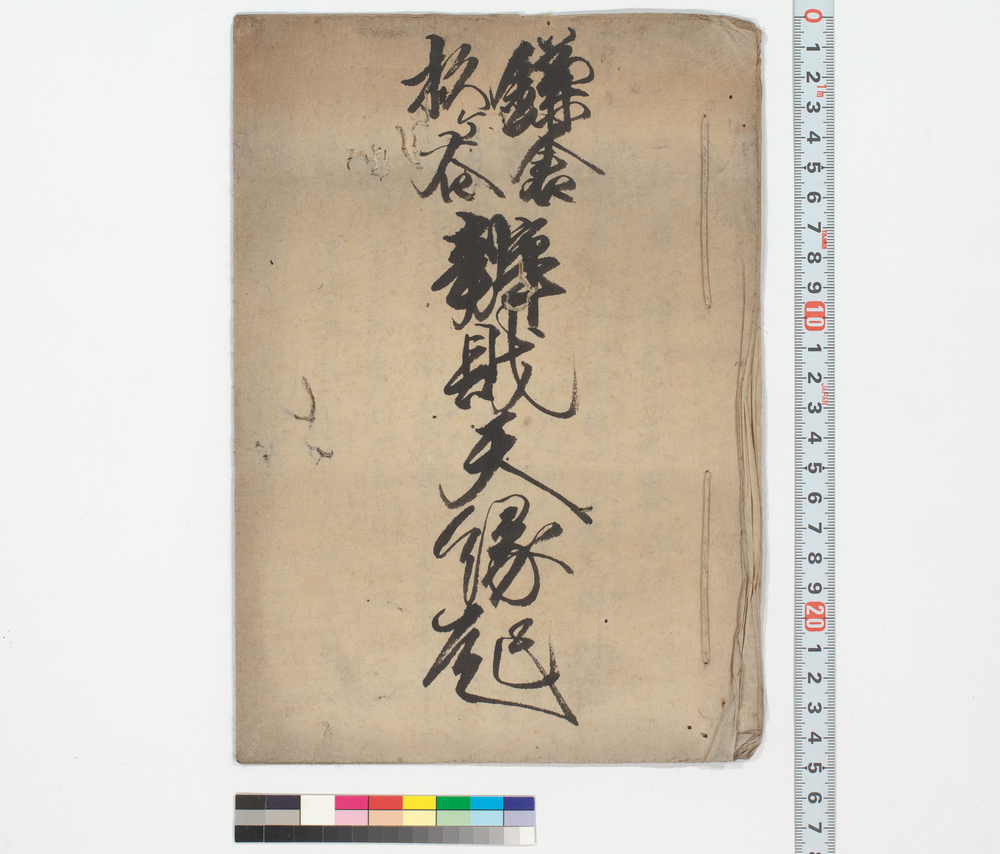 鎌倉
松ヶ谷
辨財天縁起
0
1
2
1m
3
4
5
6
7
8
9
10
1
2
JAPAN
3
4
5
6
7
8
9
20
1
2
3
4
5
6
7